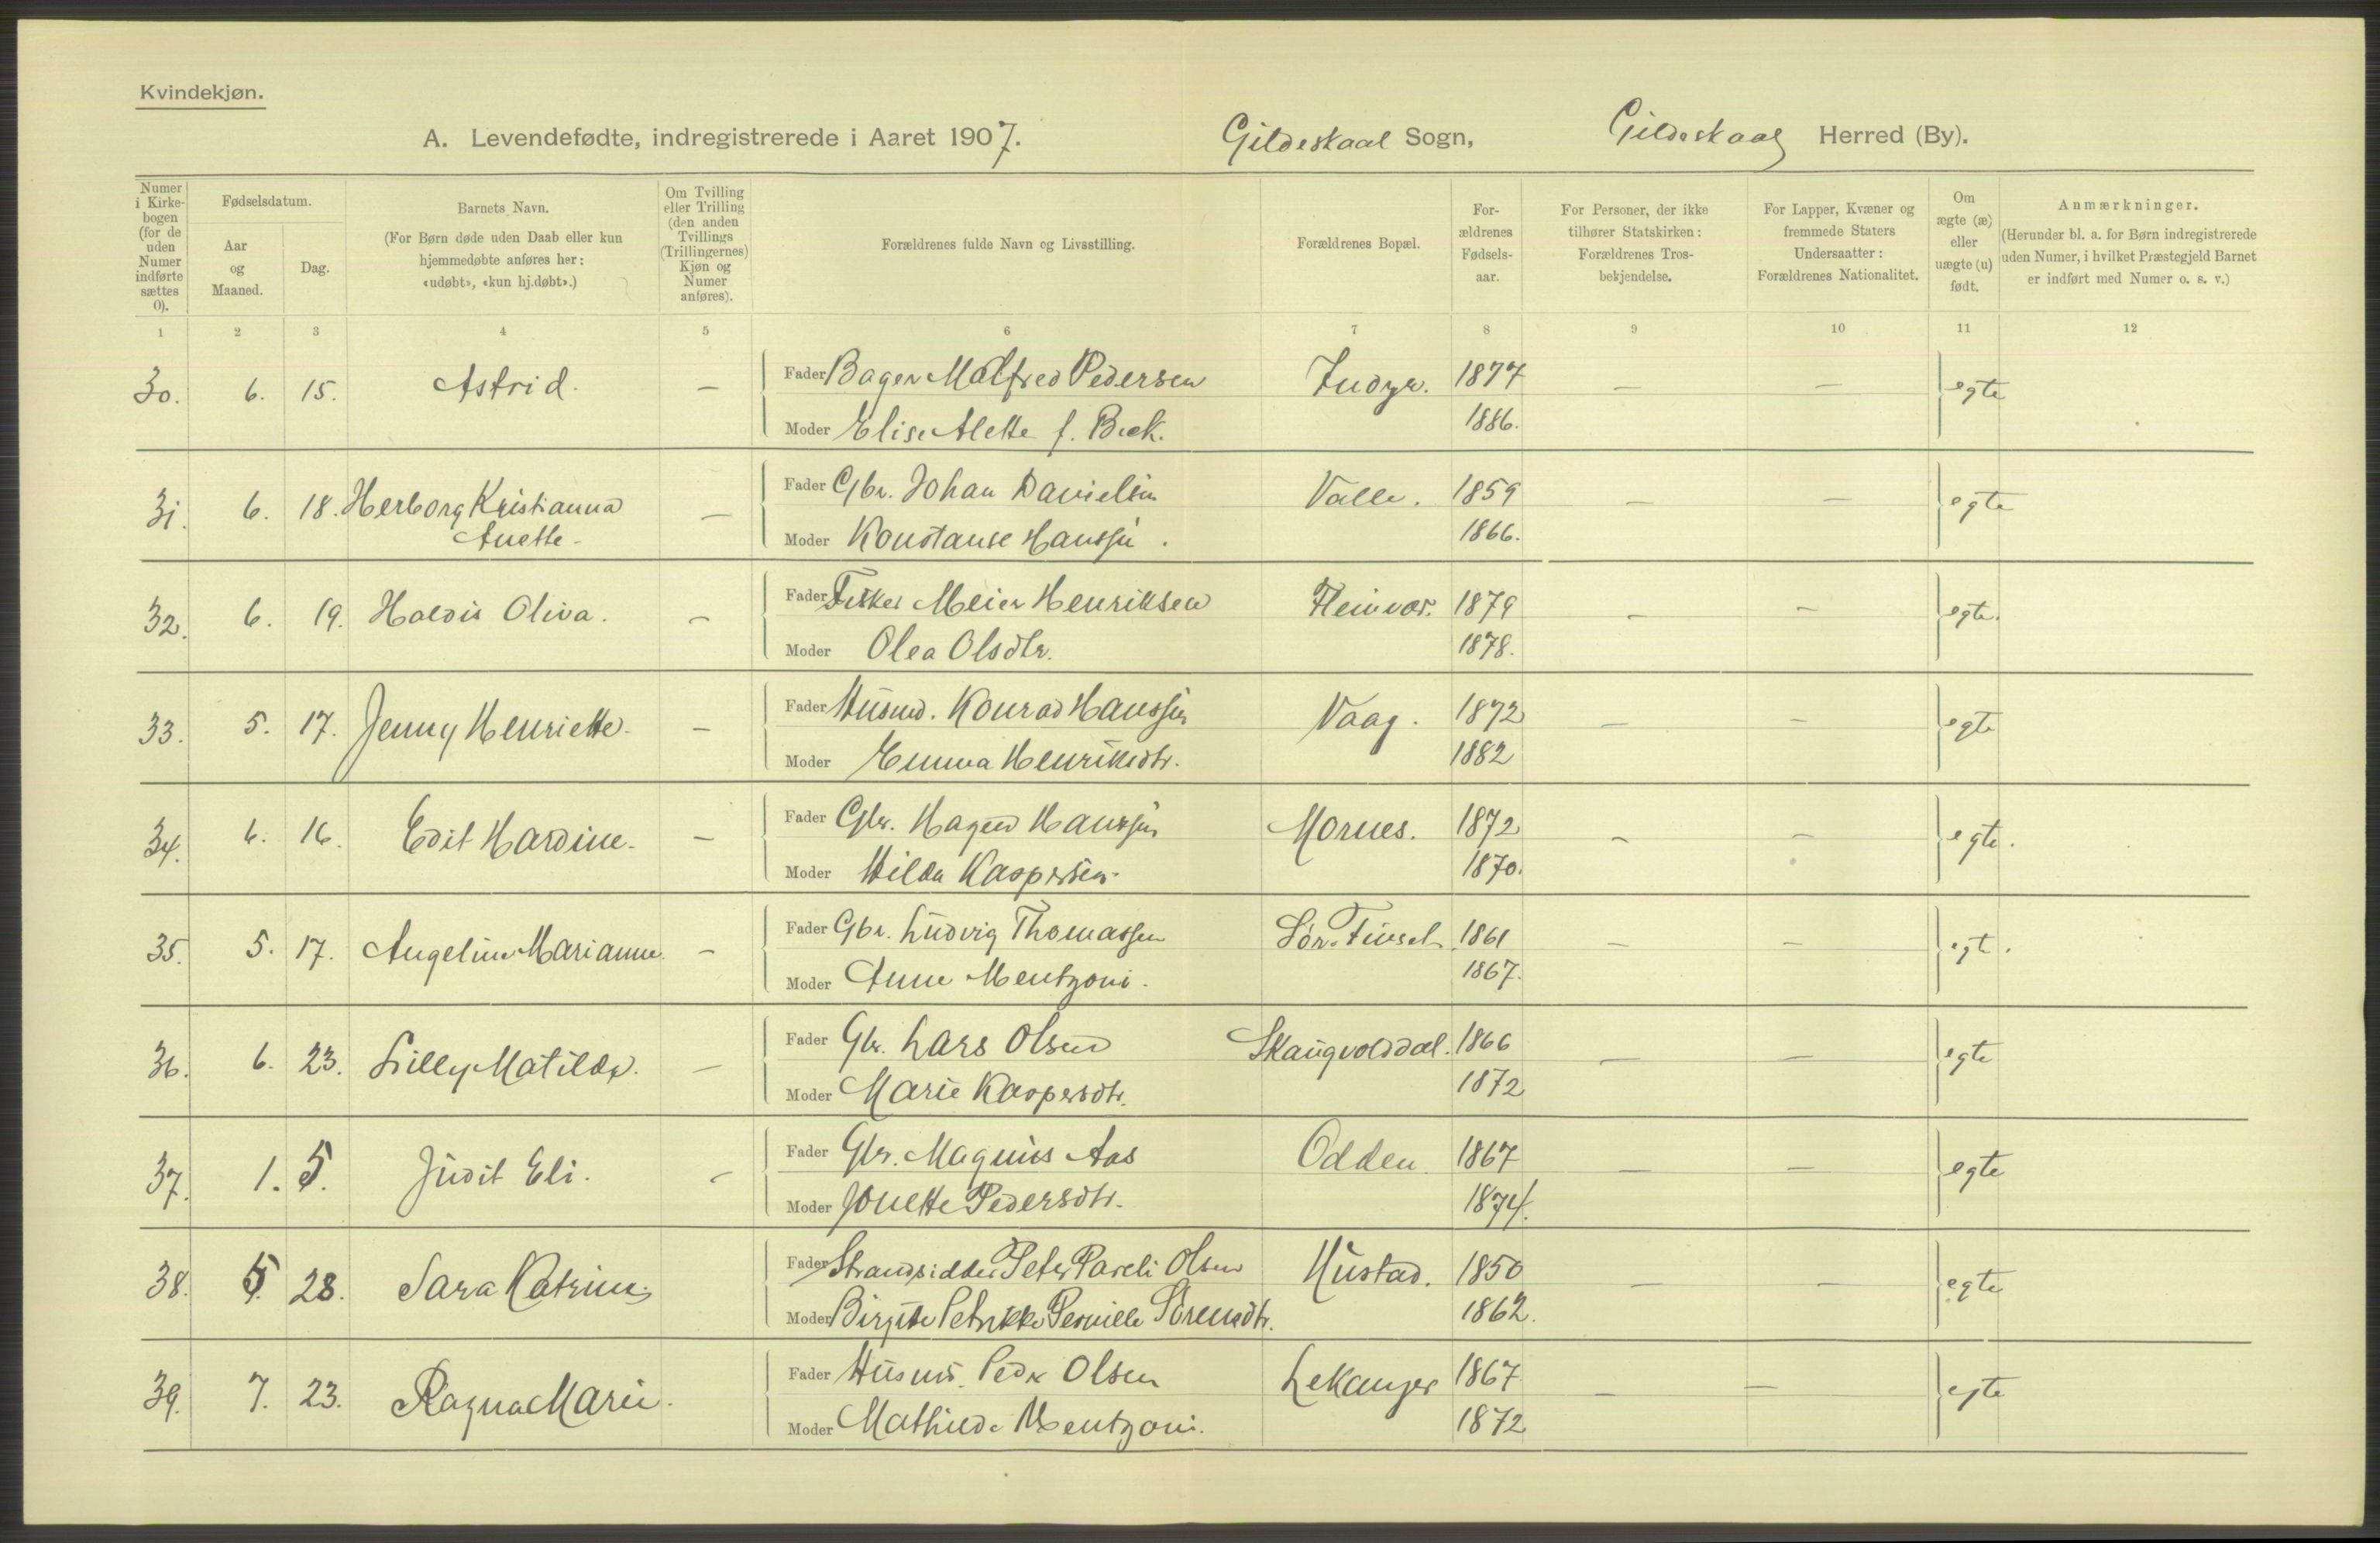 Kvindekjøn.
A. Levendefødte, indregistrerede i Aaret 1907. Gildeskaal Sogn, Gildeskaal Herred (By).
Numer i Kirke-bogen (for de uden Numer indførte sættes 0).
Fødselsdatum.
Aar og Maaned.
Dag.
Barnets Navn.
(For Børn døde uden Daab eller kun hjemmedøbte anføres her: «udøbt», «kun hj.døbt».)
Om Tvilling eller Trilling (den anden Tvillings (Trillingernes) Kjøn og Numer anføres).
Forældrenes fulde Navn og Livsstilling.
Forældrenes Bopæl.
For-ældrenes Fødsels-aar.
For Personer, der ikke tilhører Statskirken: Forældrenes Tros-bekjendelse.
For Lapper, Kvæner og fremmede Staters Undersaatter: Forældrenes Nationalitet.
Om ægte (æ) eller uægte (u) født.
Anmærkninger.
(Herunder bl. a. for Børn indregistrerede uden Numer, i hvilket Præstegjeld Barnet er indført med Numer o. s. v.)
1 2 3 4 5 6 7 8 9 10 11 12
30. 6. 15. Astrid. — Fader Bager Malfred Pedersen Indyr. 1877 — — egte
Moder Elise Alette f. Beck. 1886.
31. 6. 18. Herborg Kristianna — Fader Gbr. Johan Danielsen Valle. 1859 — — egte
Anette - Moder Konstanse Hanssen. 1866.
32. 6. 19. Haldis Oliva. — Fader Fisker Meier Henriksen Fleinvær. 1879 — — egte.
Moder Olea Olsdtr. 1878.
33. 5. 17. Jenny Henriette. — Fader Husmd. Konrad Hanssen Vaag. 1872 — — egte
Moder Emma Henriksdtr. 1882
34. 6. 16. Edit Hardine. — Fader Gbr. Hagen Hanssen Mornes. 1872 — — egte.
Moder Hilda Kaspersen. 1870.
35. 5. 17. Angeline Marianne. — Fader Gbr. Ludvig Thomassen Sør-Finset 1861 — — egt.
Moder Anne Mentzoni. 1867.
36. 6. 23. Lilly Matilde. — Fader Gbr. Lars Olsen Skaugvolddal. 1866 — — egte
Moder Marie Kaspersdtr. 1872
37. 1. 5. Judit Eli. — Fader Gbr. Magnus Aas Odden 1867 — — egte
Moder Jonette Pedersdtr. 1874.
38. 5. 28. Sara Katrine Fader Strandsidder Peter Pareli Olsen Hustad. 1850 — — egte
Moder Birgitte Petrikke Pernille Sørensdtr. 1862.
39. 7. 23. Ragna Marie. Fader Husmd. Peder Olsen Lekanger 1867. — — egte
Moder Mathilde Mentzoni. 1872